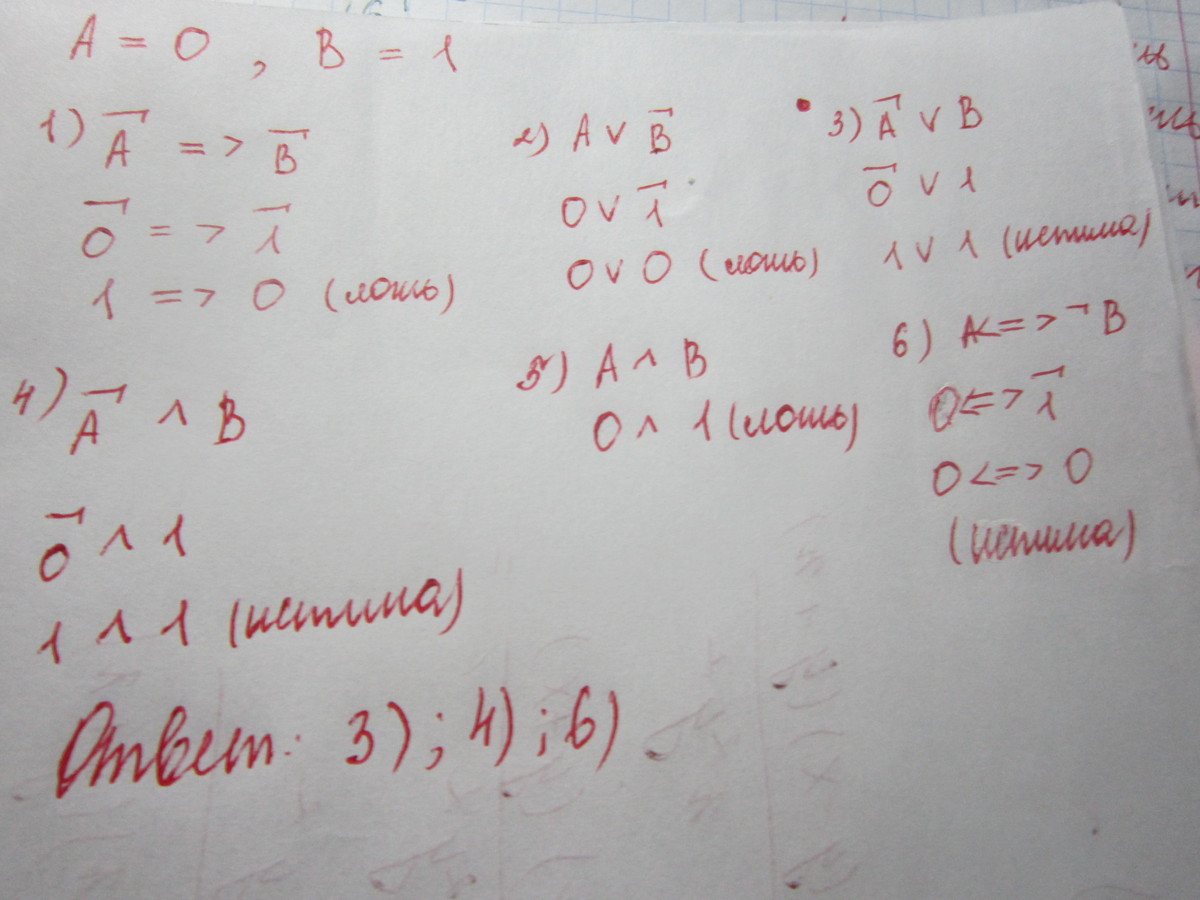 A = 0 , B = 1
1) ¬A => ¬B
¬0 => ¬1
1 => 0 (ложь)
2) A ∨ ¬B
0 ∨ ¬1
0 ∨ 0 (ложь)
3) ¬A ∨ B
¬0 ∨ 1
1 ∨ 1 (истина)
4) ¬A ∧ B
¬0 ∧ 1
1 ∧ 1 (истина)
5) A ∧ B
0 ∧ 1 (ложь)
6) A <=> ¬B
0 <=> ¬1
0 <=> 0
(истина)
Ответ: 3) ; 4) ; 6)